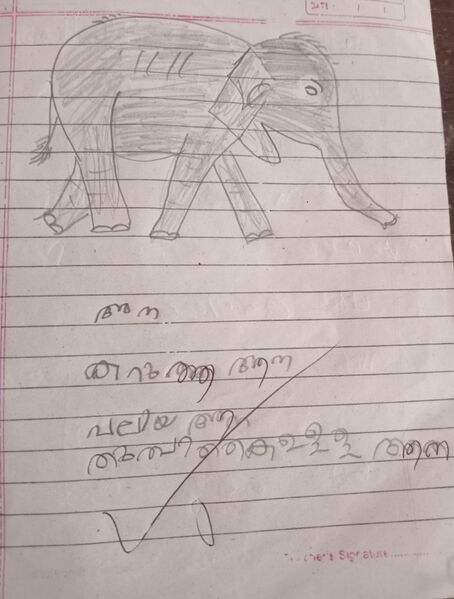 DATE: / /
അന
കറുത്ത ആന
പലിയ ആ
തുമ്പി കൈഉള്ള ആന
Teacher's Signature..............